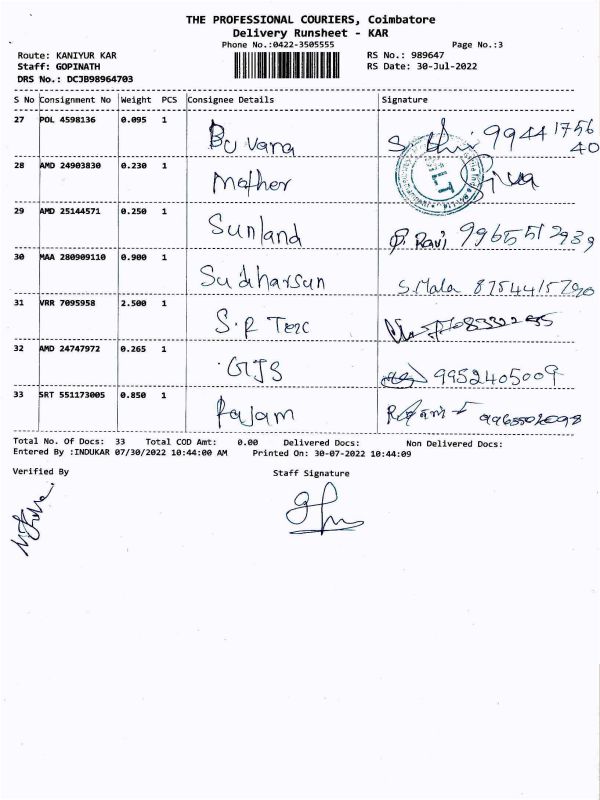 THE PROFESSIONAL COURIERS, Coimbatore
Delivery Runsheet - KAR
Phone No.:0422-3505555 Page No.:3
Route: KANIYUR KAR RS No.: 989647
Staff: GOPINATH RS Date: 30-Jul-2022
DRS No.: DCJB98964703
S No Consignment No Weight PCS Consignee Details Signature
27 POL 4598136 0.095 1 Buvana 99441756
40
28 AMD 24903830 0.230 1 Mother Siva
29 AMD 25144571 0.250 1 Sunland P. Ravi 9965512939
30 MAA 280909110 0.900 1 Sudharsun S.Mala 8754415790
31 VRR 7095958 2.500 1 S.R Tex
32 AMD 24747972 0.265 1 GTS 9952405009
33 SRT 551173005 0.850 1 Rajam
Total No. Of Docs: 33 Total COD Amt: 0.00 Delivered Docs: Non Delivered Docs:
Entered By :INDUKAR 07/30/2022 10:44:00 AM Printed On: 30-07-2022 10:44:09
Verified By Staff Signature